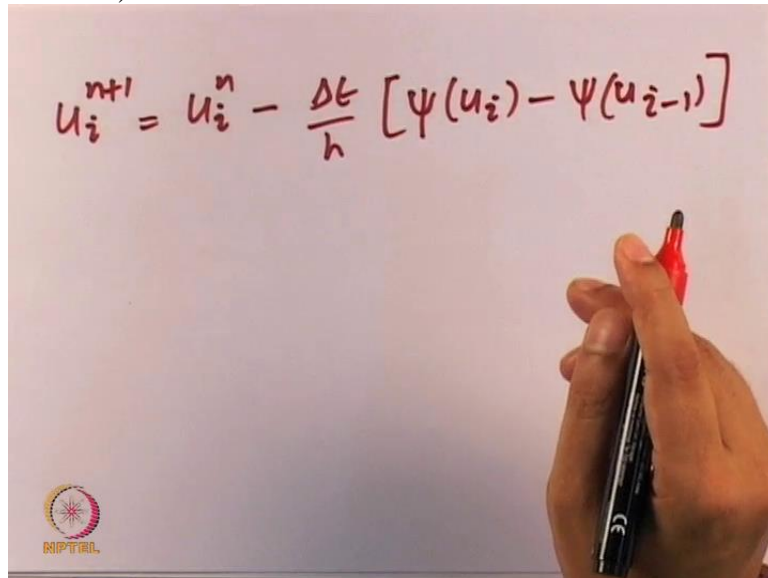 uᵢⁿ⁺¹ = uᵢⁿ − Δt/h [ψ(uᵢ) − ψ(uᵢ₋₁)]
CE
NPTEL